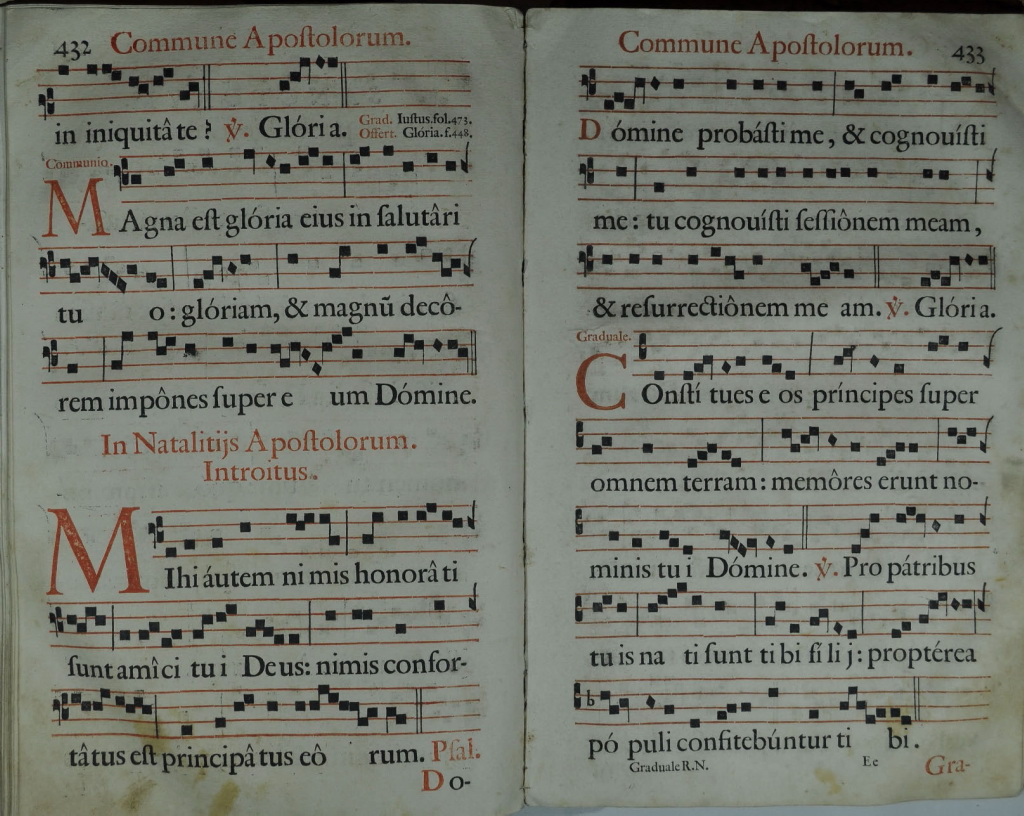 432 Commune Apoſtolorum.
in iniquitâ te? ℣. Glóri a. Grad. Iuſtus.fol.473.
Offert. Glória.f.448.
Communio.
MAgna eſt glória eius in ſalutâri
tu o: glóriam, & magnũ decô-
rem impônes ſuper e um Dómine.
In Natalitijs Apoſtolorum.
Introitus.
MIhi áutem ni mis honorâ ti
ſunt amîci tu i Deus: nimis confor-
tâtus eſt principâ tus eô rum. Pſal.
Do-
Commune Apoſtolorum. 433
Dómine probáſti me, & cognouíſti
me: tu cognouíſti ſeſſiônem meam,
& reſurrectiônem me am. ℣. Glóri a.
Graduale.
COnſtí tues e os príncipes ſuper
omnem terram: memôres erunt no-
minis tu i Dómine. ℣. Pro pátribus
tu is na ti ſunt ti bi fí li j: proptérea
pó puli confitebúntur ti bi.
Graduale R.N. Ee Gra-